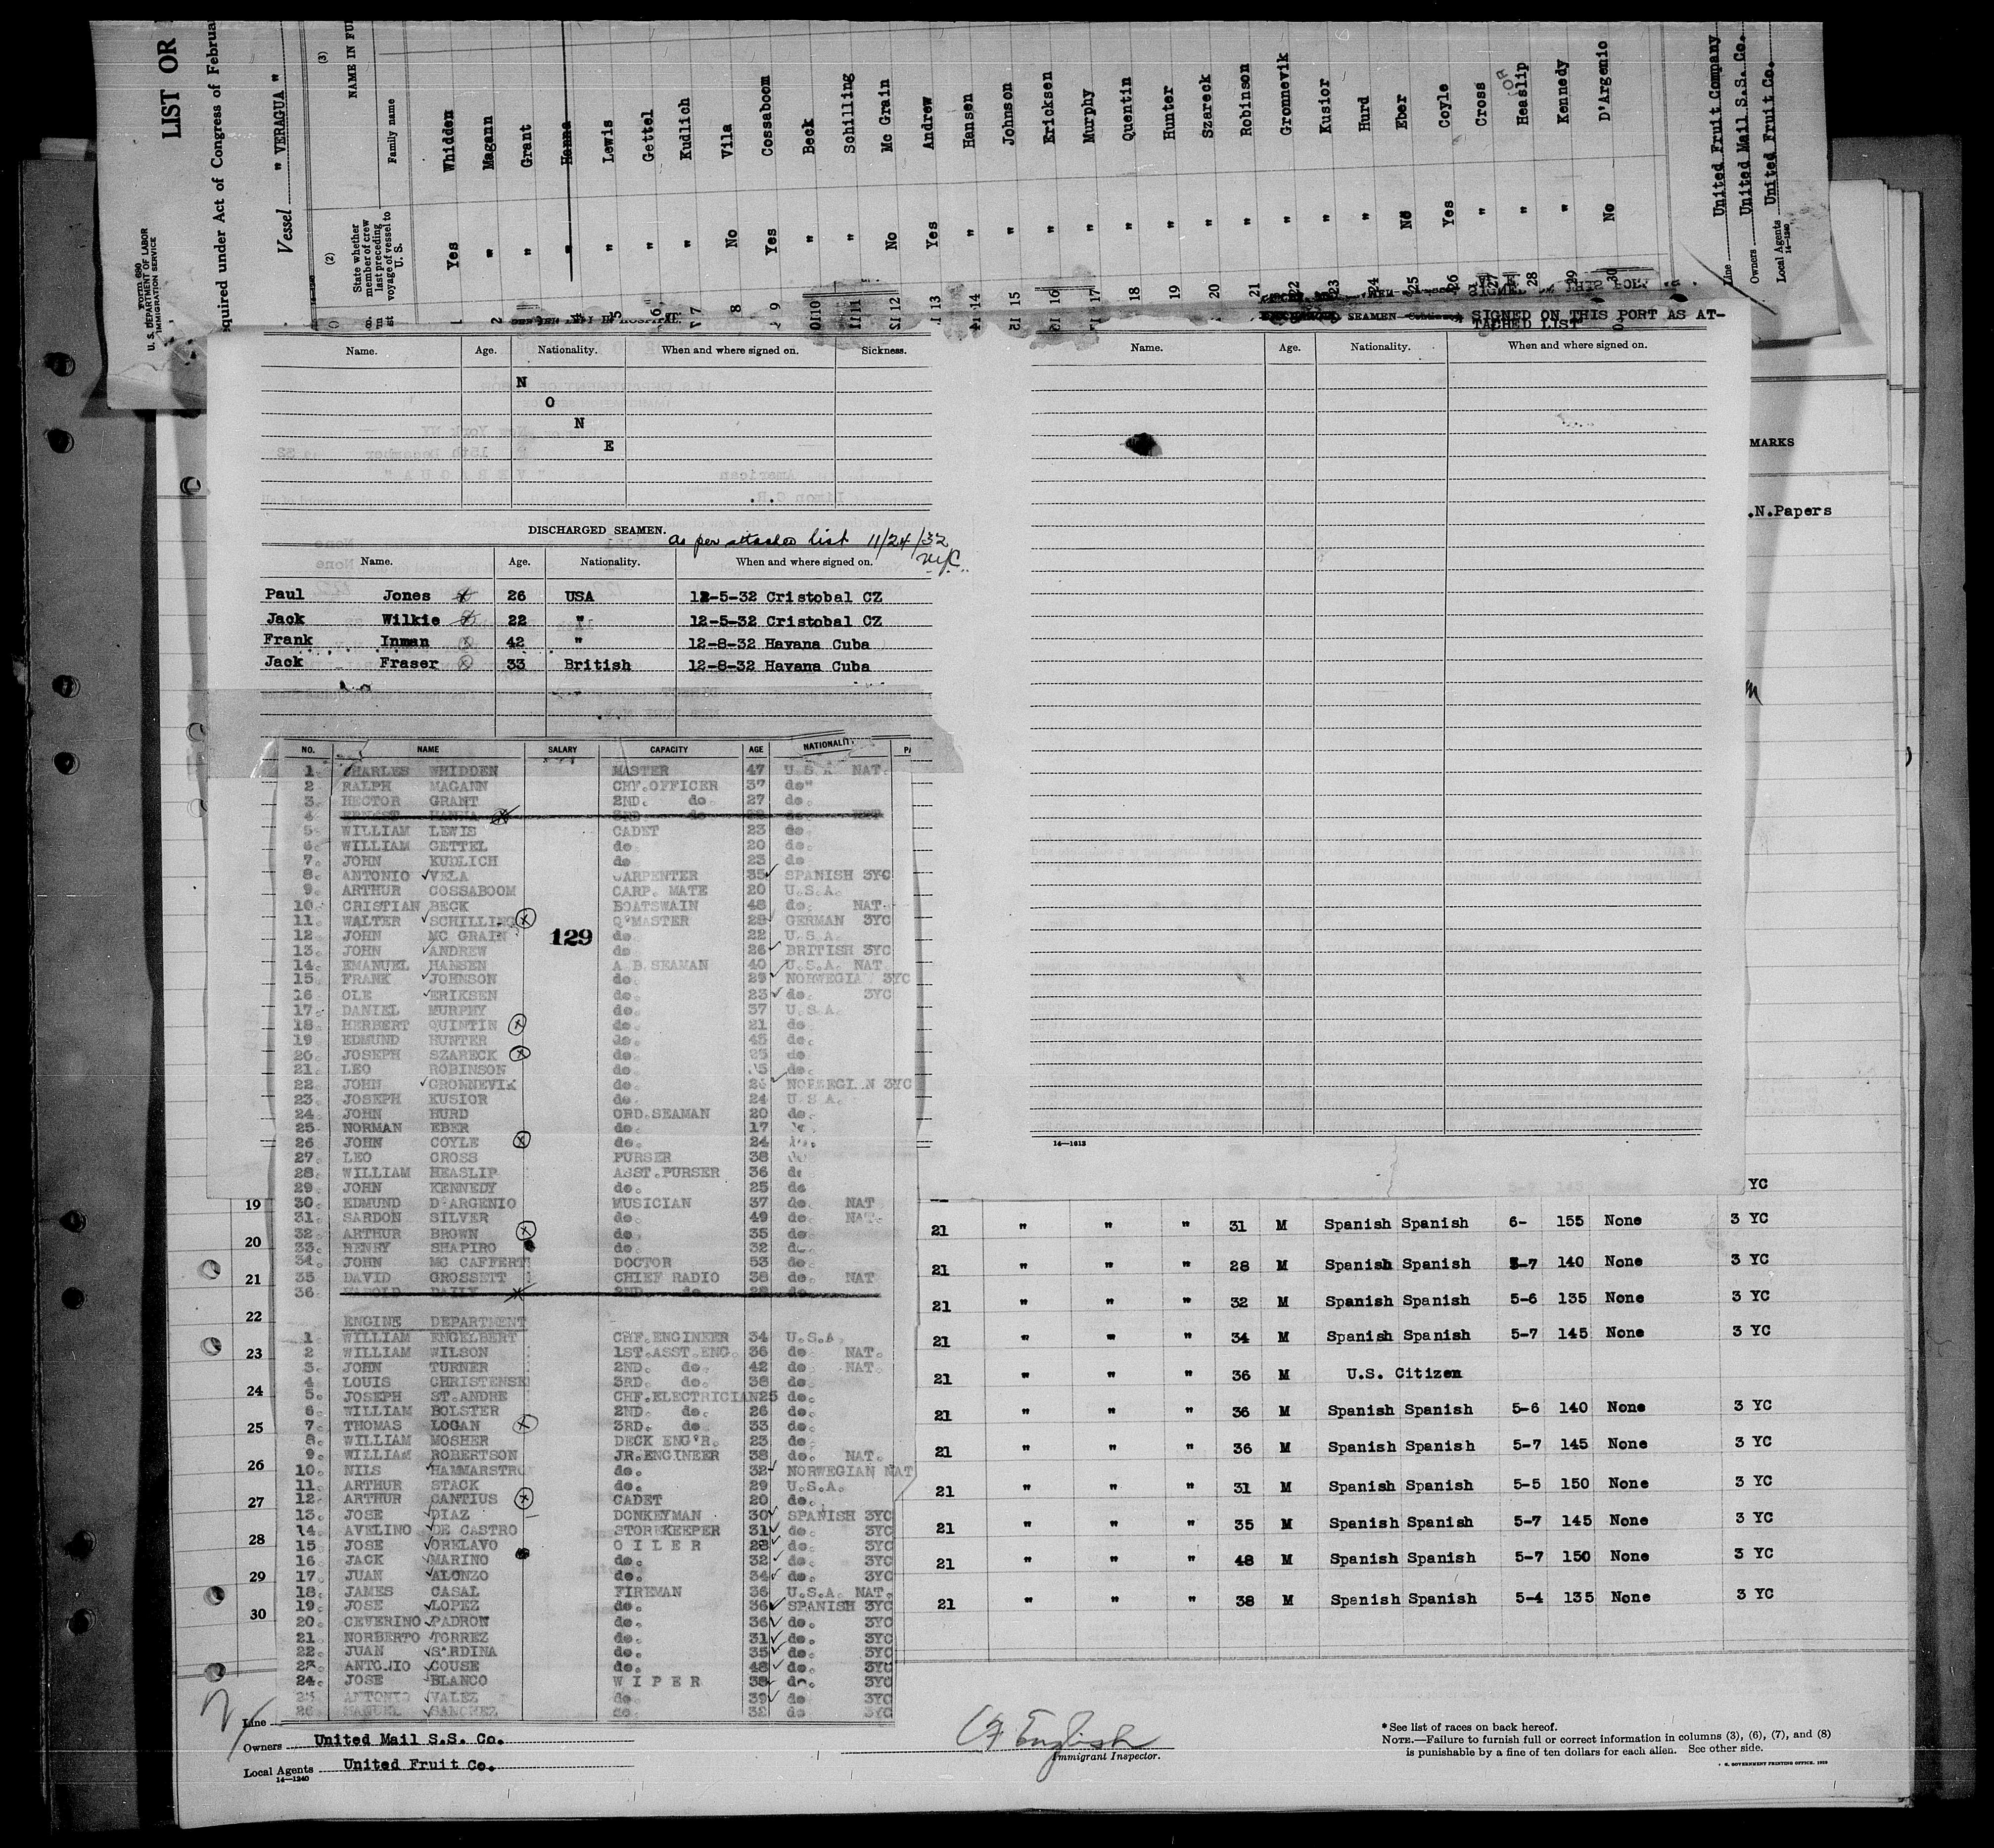 LIST OR
equired under Act of Congress of Februa
Vessel " VERAGUA "
Form 680
U. S. DEPARTMENT OF LABOR
IMMIGRATION SERVICE
(2) (3)
State whether member of crew last preceding voyage of vessel to U. S.
NAME IN FU
Family name
1 Yes Whidden
2 " Magann
" Grant
" Hanna
5 " Lewis
6 " Gettel
7 " Kudlich
8 No Vila
9 Yes Cossaboom
10 " Beck
11 " Schilling
12 No Mc Grain
13 Yes Andrew
14 " Hansen
15 " Johnson
16 " Ericksen
17 " Murphy
18 " Quentin
19 " Hunter
20 " Szareck
21 " Robinson
22 " Gronnevik
23 " Kusior
24 " Hurd
25 No Eber
26 Yes Coyle
27 " Cross
28 " Heaslip
29 " Kennedy
30 No D'Argenio
Line United Fruit Company
Owners United Mail S.S. Co.
Local Agents United Fruit Co.
14—1240
SEAMEN SIGNED ON THIS PORT AS AT-
TACHED LIST
Name. Age. Nationality. When and where signed on. Sickness.
N
O
N
E
Name. Age. Nationality. When and where signed on.
14—1613
DISCHARGED SEAMEN. as per attached list 11/24/32
NYC
Name. Age. Nationality. When and where signed on.
Paul Jones 26 USA 12-5-32 Cristobal CZ
Jack Wilkie 22 " 12-5-32 Cristobal CZ
Frank Inman 42 " 12-8-32 Havana Cuba
Jack Fraser 33 British 12-8-32 Havana Cuba
NO. NAME SALARY CAPACITY AGE NATIONALITY
1. CHARLES WHIDDEN MASTER 47 U.S.A NAT.
2 RALPH MAGANN CHF.OFFICER 37 do"
3. HECTOR GRANT 2ND. do 27 do.
4 ERNEST HANNA 3RD do NAT
5. WILLIAM LEWIS CADET 23 do
6. WILLIAM GETTEL do 20 do.
7. JOHN KUDLICH do 23 do
8. ANTONIO VELA CARPENTER 35 SPANISH 3YC
9. ARTHUR COSSABOOM CARP. MATE 20 U.S.A.
10. CRISTIAN BECK BOATSWAIN 48 do. NAT.
11. WALTER SCHILLING Q'MASTER 28 GERMAN 3YC
12. JOHN MC GRAIN do 22 U.S.A.
129
13. JOHN ANDREW do 26 BRITISH 3YC
14. EMANUEL HANSEN A B.SEAMAN 40 U.S.A. NAT
15. FRANK JOHNSON do. 29 NORWEGIA 3YC
16 OLE ERIKSEN do. 23 do. 3YC
17. DANIEL MURPHY do. 37 U.S.A.
18. HERBERT QUINTIN do. 21 do
19 EDMUND HUNTER do. 45 do.
20. JOSEPH SZARECK do. 25 do
21. LEO ROBINSON do. 5 do.
22. JOHN GRONNEVIK do. 26 NORWEGI N 3YC
23. JOSEPH KUSIOR do. 24 U.S.A.
24. JOHN HURD ORD.SEAMAN 20 do.
25. NORMAN EBER do. 17
26 JOHN COYLE do. 24
27. LEO CROSS PURSER 38
28. WILLIAM HEASLIP ASST.PURSER 36 do
29. JOHN KENNEDY do. 25 do
30. EDMUND D'ARGENIO MUSICIAN 37 do. NAT
31. SARDON SILVER do. 49 do. NAT.
32. ARTHUR BROWN do. 35 do.
33. HENRY SHAPIRO do. 32 do.
34. JOHN MC CAFFERT DOCTOR 53 do.
35 DAVID GROSSETT CHIEF RADIO 38 do. NAT
36. HAROLD DAILY 2ND. do do
ENGINE DEPARTMENT
1. WILLIAM ENGELBERT CHF.ENGINEER 34 U.S.A.
2 WILLIAM WILSON 1ST.ASST.ENG. 36 do NAT.
3. JOHN TURNER 2ND. do. 42 do. NAT.
4 LOUIS CHRISTENSE 3RD. do. 38 do.
5. JOSEPH ST.ANDRE CHF.ELECTRICIAN 25 do.
6. WILLIAM BOLSTER 2ND. do. 26 do.
7. THOMAS LOGAN 3RD. do 33 do.
8. WILLIAM MOSHER DECK ENG'R. 23 do.
9. WILLIAM ROBERTSON JR.ENGINEER 38 do. NAT.
10. NILS HAMMARSTRO do. 32 NORWEGIAN NAT
11. ARTHUR STACK do. 29 U.S.A.
12. ARTHUR CANTIUS CADET 20 do.
13. JOSE DIAZ DONKEYMAN 30 SPANISH 3YC
14. AVELINO DE CASTRO STOREKEEPER 31 do. 3YC
15. JOSE ORELAVO O I L E R 28 do. 3YC
16 JACK MARINO do. 32 do. 3YC
17. JUAN ALONZO do. 34 do. 3YC
18. JAMES CASAL FIREMAN 36 U.S.A. NAT.
19. JOSE LOPEZ do. 36 SPANISH 3YC
20. CEVERINO PADRON do. 36 do. 3YC
21 NORBERTO TORREZ do. 31 do. 3YC
22. JUAN SARDINA do. 35 do. 3YC
23. ANTONIO COUSE do. 48 do. 3YC
24. JOSE BLANCO W I P E R 38 do. 3YC
25 ANTONIO VALEZ do 39 do 3YC
26. MANUEL SANCHEZ do 32 do 3YC
MARKS
.N.Papers
YC
19 21 " " " 31 M Spanish Spanish 6- 155 None 3 YC
20 21 " " " 28 M Spanish Spanish 5-7 140 None 3 YC
21 21 " " " 32 M Spanish Spanish 5-6 135 None 3 YC
22 21 " " " 34 M Spanish Spanish 5-7 145 None 3 YC
23 21 " " " 36 M U.S. Citizen
24 21 " " " 36 M Spanish Spanish 5-6 140 None 3 YC
25 21 " " " 36 M Spanish Spanish 5-7 145 None 3 YC
26 21 " " " 31 M Spanish Spanish 5-5 150 None 3 YC
27 21 " " " 35 M Spanish Spanish 5-7 145 None 3 YC
28 21 " " " 48 M Spanish Spanish 5-7 150 None 3 YC
29 21 " " " 38 M Spanish Spanish 5-4 135 None 3 YC
30
Line
Owners United Mail S.S. Co.
Local Agents United Fruit Co.
14—1240
English
Immigrant Inspector.
*See list of races on back hereof.
NOTE.—Failure to furnish full or correct information in columns (3), (6), (7), and (8)
is punishable by a fine of ten dollars for each alien. See other side.
U. S. GOVERNMENT PRINTING OFFICE